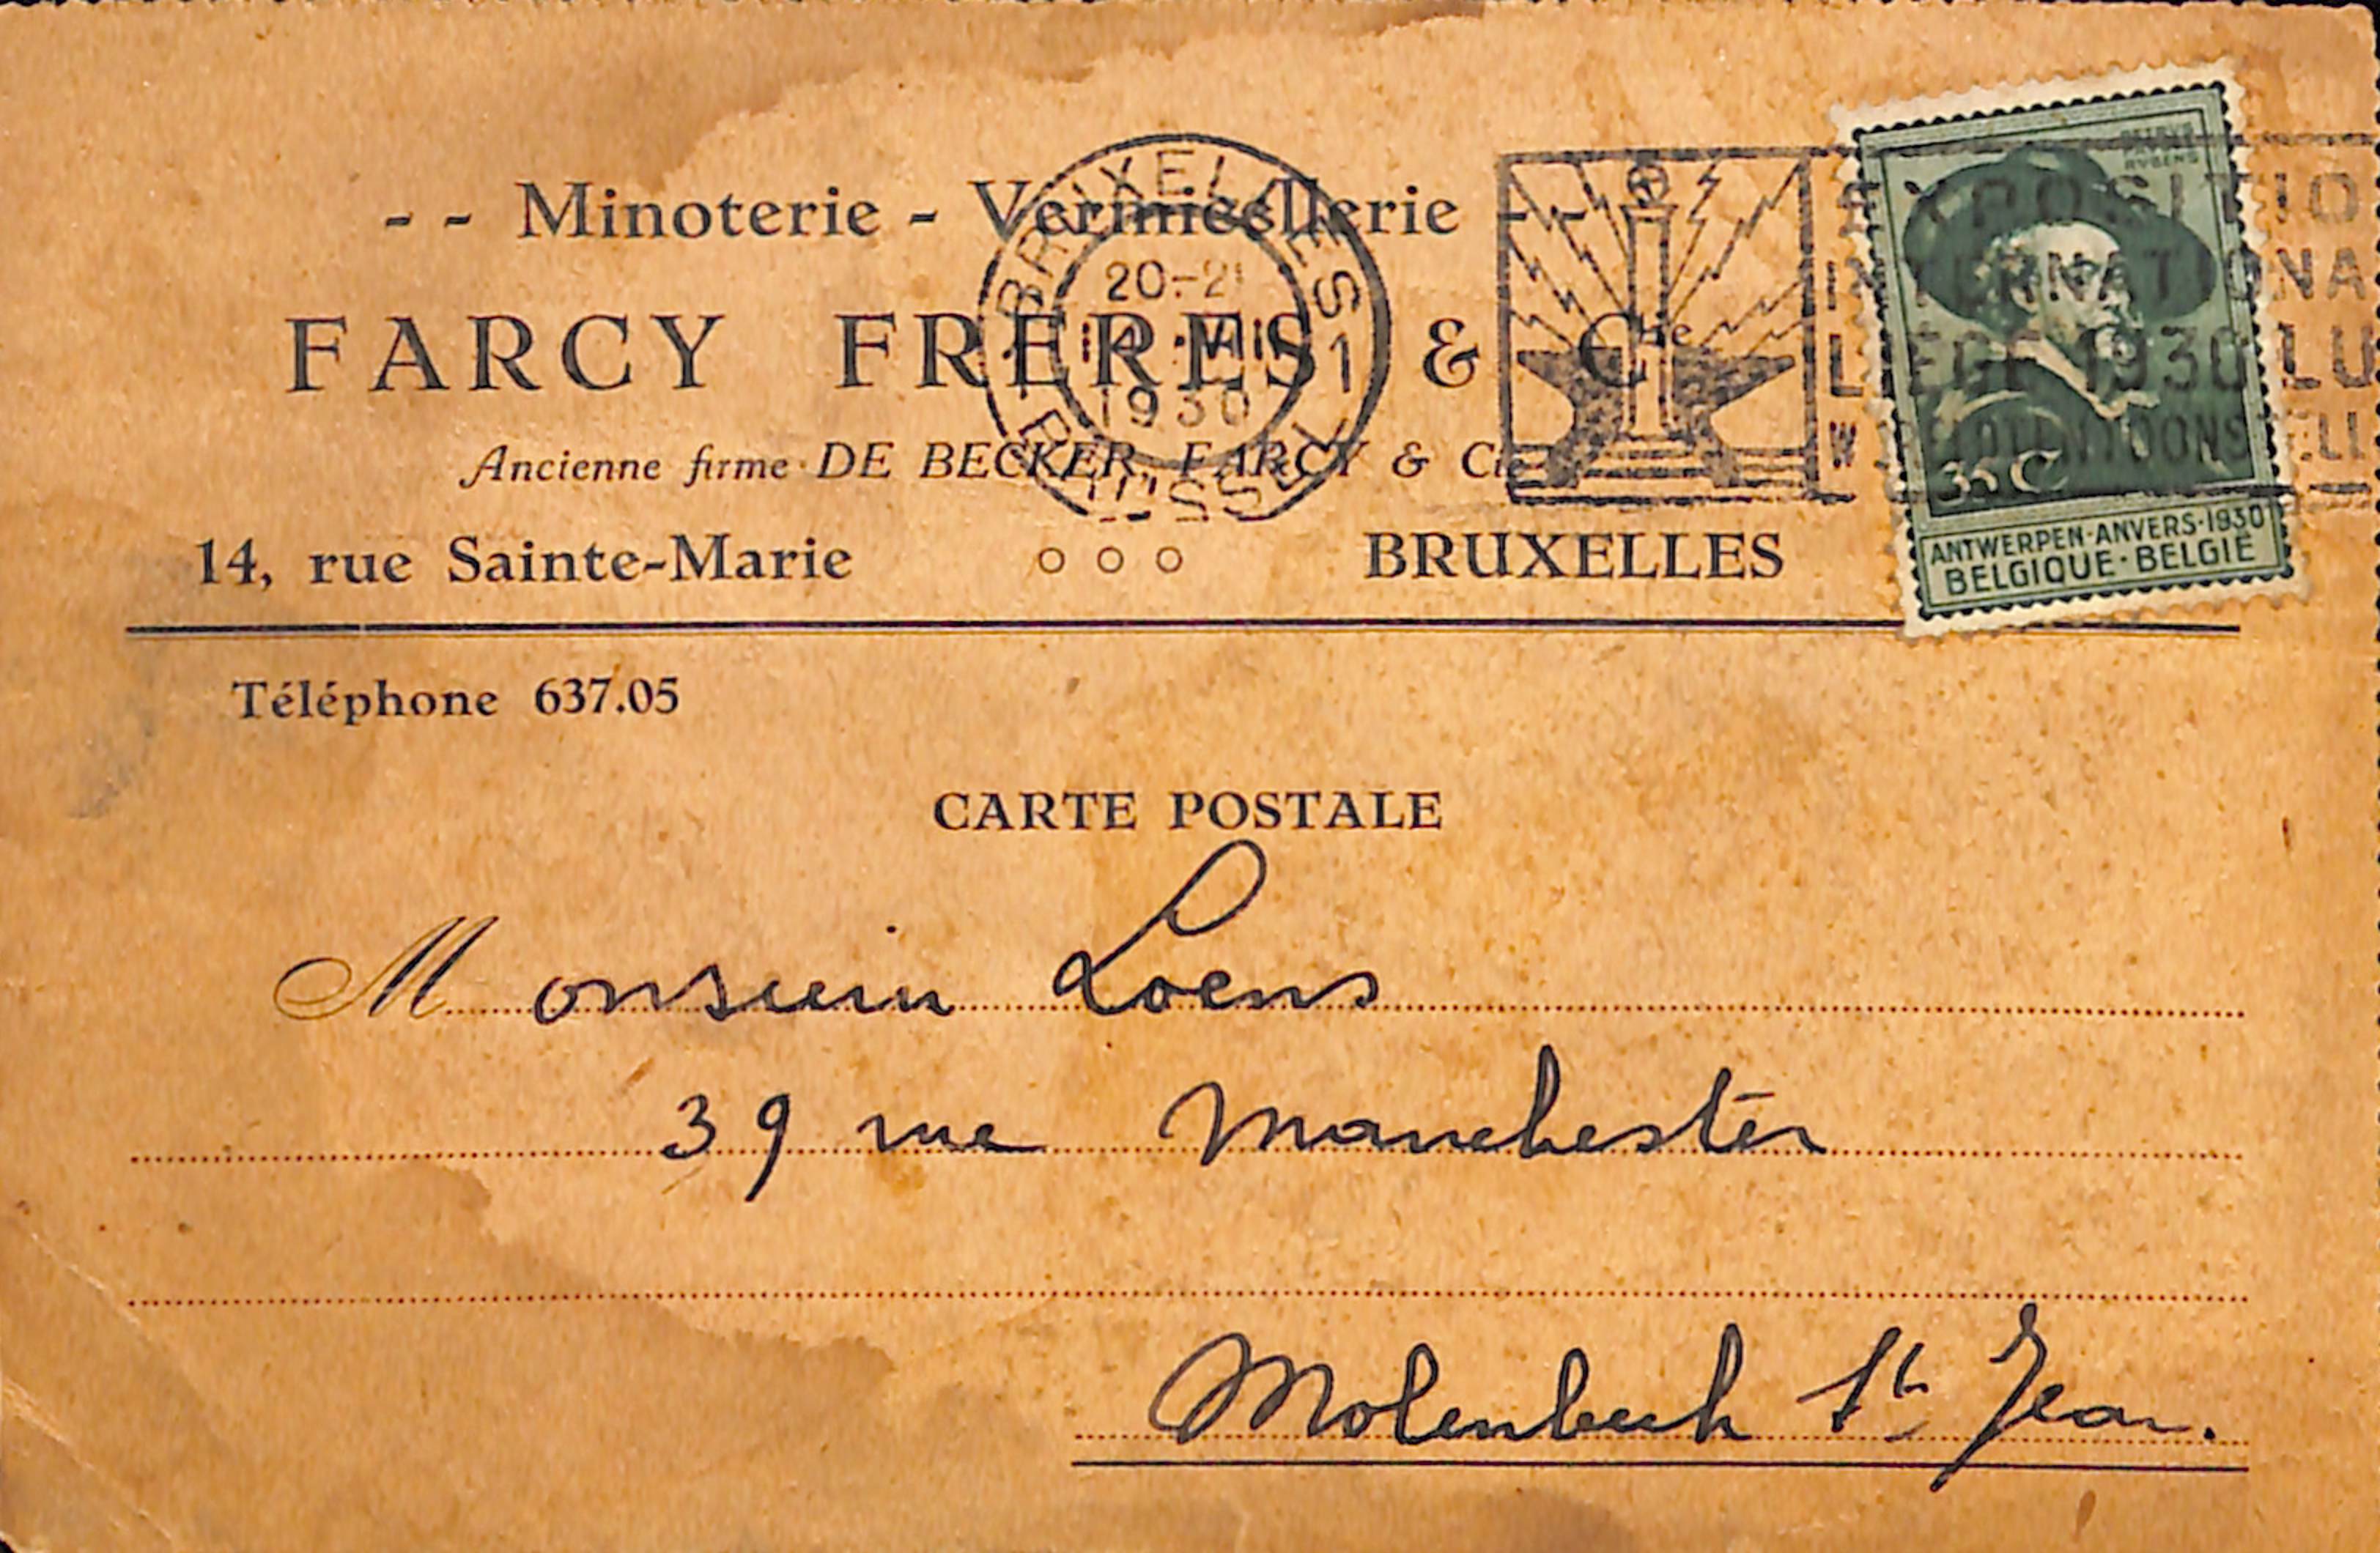 - - Minoterie - Vermicellerie - -
FARCY FRERES & Cie
Ancienne firme DE BECKER, FARCY & Cie
14, rue Sainte-Marie ooo BRUXELLES
Téléphone 637.05
BRUXELLES 1
20-21
1930
BRUSSEL
EXPOSITIO
INTERNATIONA
LIEGE 1930 LU
35 C
ANTWERPEN·ANVERS·1930
BELGIQUE·BELGIË
CARTE POSTALE
Monsieur Loens
39 rue Manchester
Molenbeek St Jean.